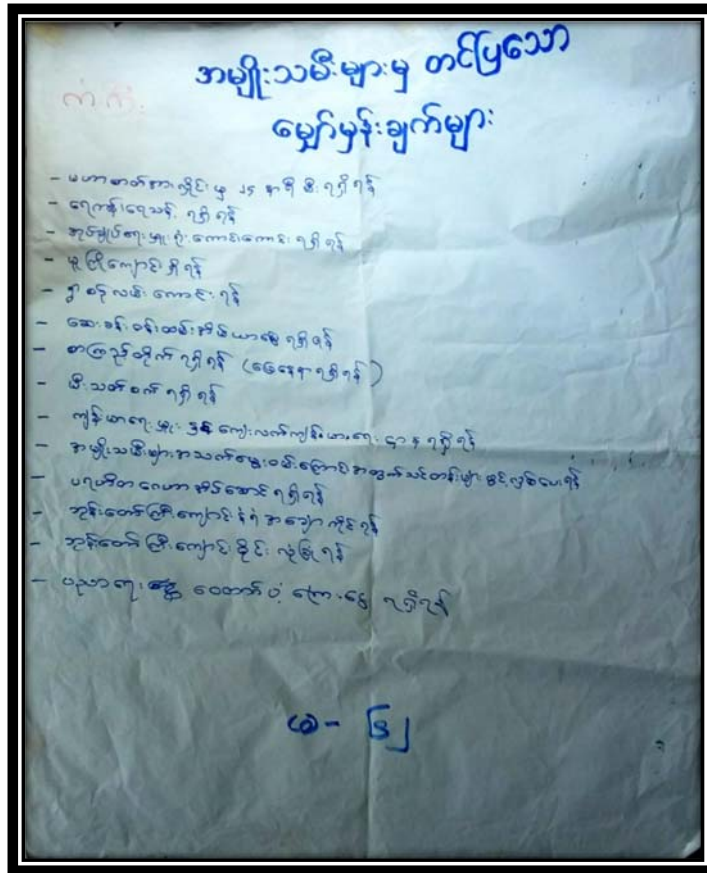 အမျိုးသမီးများမှ တင်ပြသော
မျှော်မှန်းချက်များ
- မဟာဓာတ်အားလိုင်းမှ ၂၄ နာရီ မီးရရှိရန်
- ရေကန်၊ရေသန့် ရရှိရန်
- အုပ်ချုပ်ရေးမှူးရုံးကောင်းကောင်းရရှိရန်
- မူကြိုကျောင်းရှိရန်
- ရွာ လမ်းကောင်းရန်
- ဆေးခန်းဝန်ထမ်းအိမ်ယာ ရရှိရန်
- စာကြည့်တိုက်ရရှိရန် (မြေနေရာရရှိရန်)
- မီးသတ်စက်ရရှိရန်
- ကျန်းမာရေးမှူး ကျေးလက်ကျန်းမာရေးဌာနရရှိရန်
- အမျိုးသမီးများအသက်မွေးဝမ်းကြောင်းအတွက်သင်တန်းများဖွင့်လှစ်ပေးရန်
- ပရဟိတဂေဟာအဆောင်ရရှိရန်
- ဘုန်းတော်ကြီးကျောင်းနံရံ
- ဘုန်းတော်ကြီးကျောင်းဝိုင်း လုံခြုံရန်
- ပညာရေး ထောက်ပံ့ကြေးငွေ ရရှိရန်